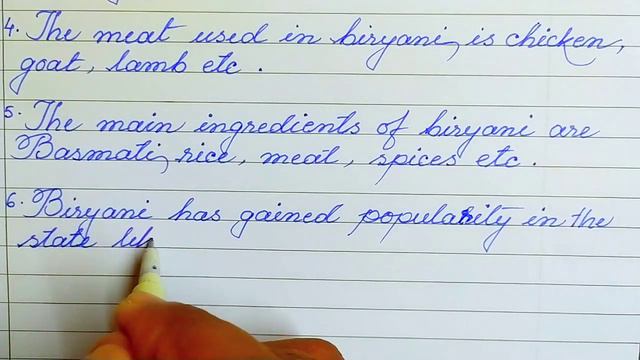 4. The meat used in biryani, is chicken,
goat, lamb etc.
5. The main ingredients of biryani are
Basmati, rice, meat, spices etc.
6. Biryani has gained popularity in the
state